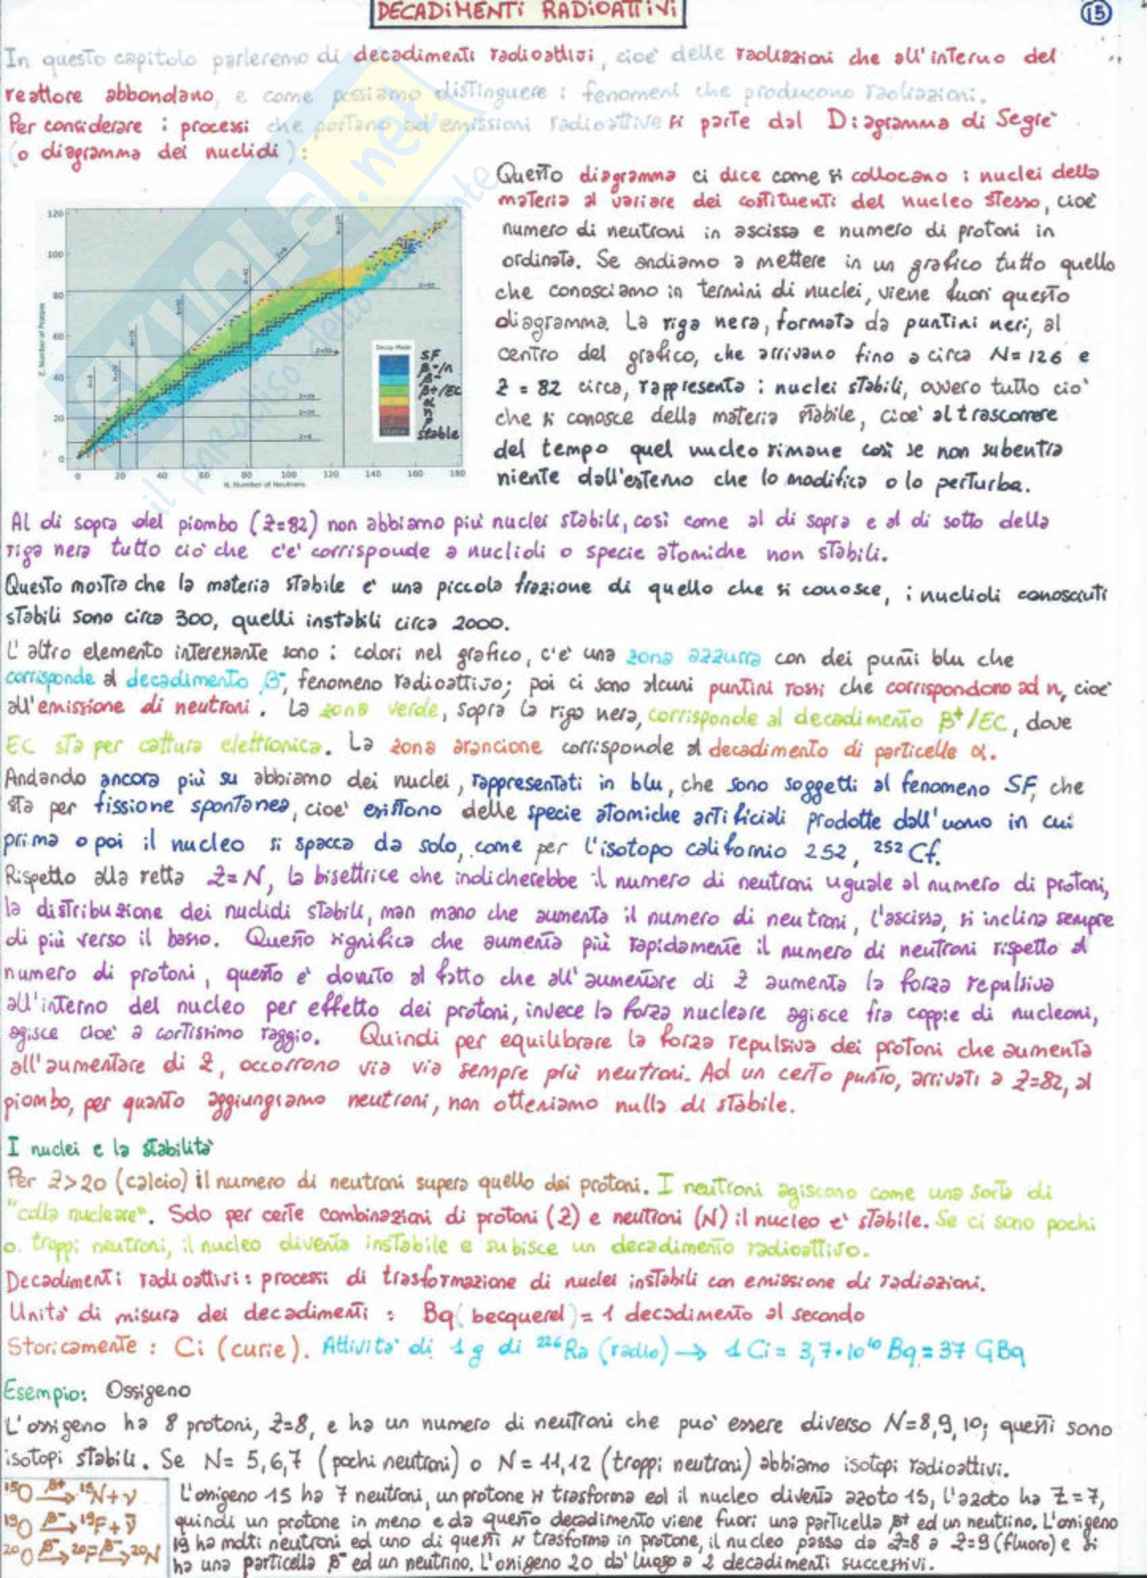 DECADIMENTI RADIOATTIVI
15
In questo capitolo parleremo di decadimenti radioattivi, cioè delle radiazioni che all'interno del
reattore abbondano, e come possiamo distinguere i fenomeni che producono radiazioni.
Per considerare i processi che portano ad emissioni radioattive si parte dal Diagramma di Segrè
(o diagramma dei nuclidi):
Questo diagramma ci dice come si collocano i nuclei della
materia al variare dei costituenti del nucleo stesso, cioè
numero di neutroni in ascissa e numero di protoni in
ordinata. Se andiamo a mettere in un grafico tutto quello
che conosciamo in termini di nuclei, viene fuori questo
diagramma. La riga nera, formata da puntini neri, al
centro del grafico, che arrivano fino a circa N=126 e
Z=82 circa, rappresenta i nuclei stabili, ovvero tutto ciò
che si conosce della materia stabile, cioè al trascorrere
del tempo quel nucleo rimane così se non subentra
niente dall'esterno che lo modifica o lo perturba.
120
100
80
60
40
20
0
Z, Number of Protons
0 20 40 60 80 100 120 140 160 180
N, Number of Neutrons
Decay Mode
SF
β-/n
β-
β+/EC
α
n
P
stable
SKUOLA.net
Al di sopra del piombo (Z=82) non abbiamo più nuclei stabili, così come al di sopra e al di sotto della
riga nera tutto ciò che c'è corrisponde a nuclidi o specie atomiche non stabili.
Questo mostra che la materia stabile è una piccola frazione di quello che si conosce, i nuclidi conosciuti
stabili sono circa 300, quelli instabili circa 2000.
L'altro elemento interessante sono i colori nel grafico, c'è una zona azzurra con dei punti blu che
corrisponde al decadimento β-, fenomeno radioattivo; poi ci sono alcuni puntini rossi che corrispondono ad n, cioè
all'emissione di neutroni. La zona verde, sopra la riga nera, corrisponde al decadimento β+/EC, dove
EC sta per cattura elettronica. La zona arancione corrisponde al decadimento di particelle α.
Andando ancora più su abbiamo dei nuclei, rappresentati in blu, che sono soggetti al fenomeno SF, che
sta per fissione spontanea, cioè esistono delle specie atomiche artificiali prodotte dall'uomo in cui
prima o poi il nucleo si spacca da solo, come per l'isotopo californio 252, ²⁵²Cf.
Rispetto alla retta Z=N, la bisettrice che indicherebbe il numero di neutroni uguale al numero di protoni,
la distribuzione dei nuclidi stabili, man mano che aumenta il numero di neutroni, l'ascissa, si inclina sempre
di più verso il basso. Questo significa che aumenta più rapidamente il numero di neutroni rispetto al
numero di protoni, questo è dovuto al fatto che all'aumentare di Z aumenta la forza repulsiva
all'interno del nucleo per effetto dei protoni, invece la forza nucleare agisce fra coppie di nucleoni,
agisce cioè a cortissimo raggio. Quindi per equilibrare la forza repulsiva dei protoni che aumenta
all'aumentare di Z, occorrono via via sempre più neutroni. Ad un certo punto, arrivati a Z=82, al
piombo, per quanto aggiungiamo neutroni, non otteniamo nulla di stabile.
I nuclei e la stabilità
Per Z>20 (calcio) il numero di neutroni supera quello dei protoni. I neutroni agiscono come una sorta di
"colla nucleare". Solo per certe combinazioni di protoni (Z) e neutroni (N) il nucleo è stabile. Se ci sono pochi
o troppi neutroni, il nucleo diventa instabile e subisce un decadimento radioattivo.
Decadimenti radioattivi: processi di trasformazione di nuclei instabili con emissione di radiazioni.
Unità di misura dei decadimenti: Bq (becquerel) = 1 decadimento al secondo
Storicamente: Ci (curie). Attività di 1 g di ²²⁶Ra (radio) → 1 Ci = 3,7·10¹⁰ Bq = 37 GBq
Esempio: Ossigeno
L'ossigeno ha 8 protoni, Z=8, e ha un numero di neutroni che può essere diverso N=8,9,10; questi sono
isotopi stabili. Se N= 5,6,7 (pochi neutroni) o N=11,12 (troppi neutroni) abbiamo isotopi radioattivi.
¹⁵O β+→ ¹⁵N+ν
¹⁹O β-→ ¹⁹F+ν̄
²⁰O β-→ ²⁰F β-→ ²⁰N
L'ossigeno 15 ha 7 neutroni, un protone si trasforma ed il nucleo diventa azoto 15, l'azoto ha Z=7,
quindi un protone in meno e da questo decadimento viene fuori una particella β+ ed un neutrino. L'ossigeno
19 ha molti neutroni ed uno di questi si trasforma in protone, il nucleo passa da Z=8 a Z=9 (fluoro) e si
ha una particella β- ed un neutrino. L'ossigeno 20 dà luogo a 2 decadimenti successivi.